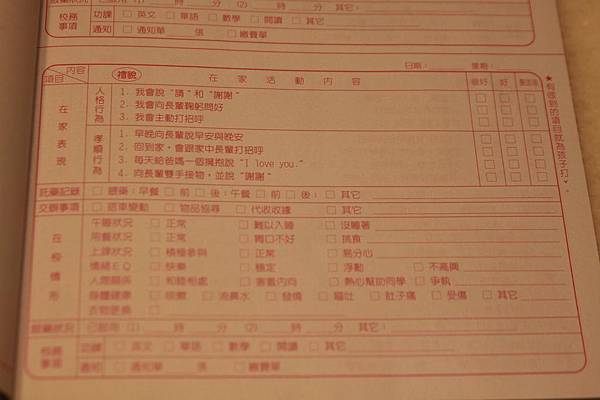 校務事項 功課 □英文 □華語 □數學 □閱讀 □其它
通知 □通知單 張 □繳費單
日期： 星期：
項目 內容 禮貌 在家活動內容 很好 好
在家表現 人格行為 1. 我會說“請”和“謝謝”
2. 我會向長輩鞠躬問好
3. 我會主動打招呼
孝順行為 1. 早晚向長輩說早安與晚安
2. 回到家，會跟家中長輩打招呼
3. 每天給爸媽一個擁抱說“I love you.”
4. 向長輩雙手接物，並說“謝謝”
★有做到的項目就為孩子打✓
託藥記錄 □感藥：早餐 □前 □後：午餐 □前 □後： □其它
交辦事項 □搭車變動 □物品協尋 □代收收據 □其它
在校情形 午睡狀況 □正常 □難以入睡 □沒睡著
用餐狀況 □正常 □胃口不好 □挑食
上課狀況 □積極參與 □正常 □易分心
情緒EQ □快樂 □穩定 □浮動 □不高興
人際關係 □和睦相處 □害羞內向 □熱心幫助同學 □爭執
身體健康 □咳嗽 □流鼻水 □發燒 □嘔吐 □肚子痛 □受傷 □其它
衣物更換 □
服藥狀況 □已服用 (1) 時 分 (2) 時 分 其它：
校務事項 功課 □英文 □華語 □數學 □閱讀 □其它
通知 □通知單 張 □繳費單